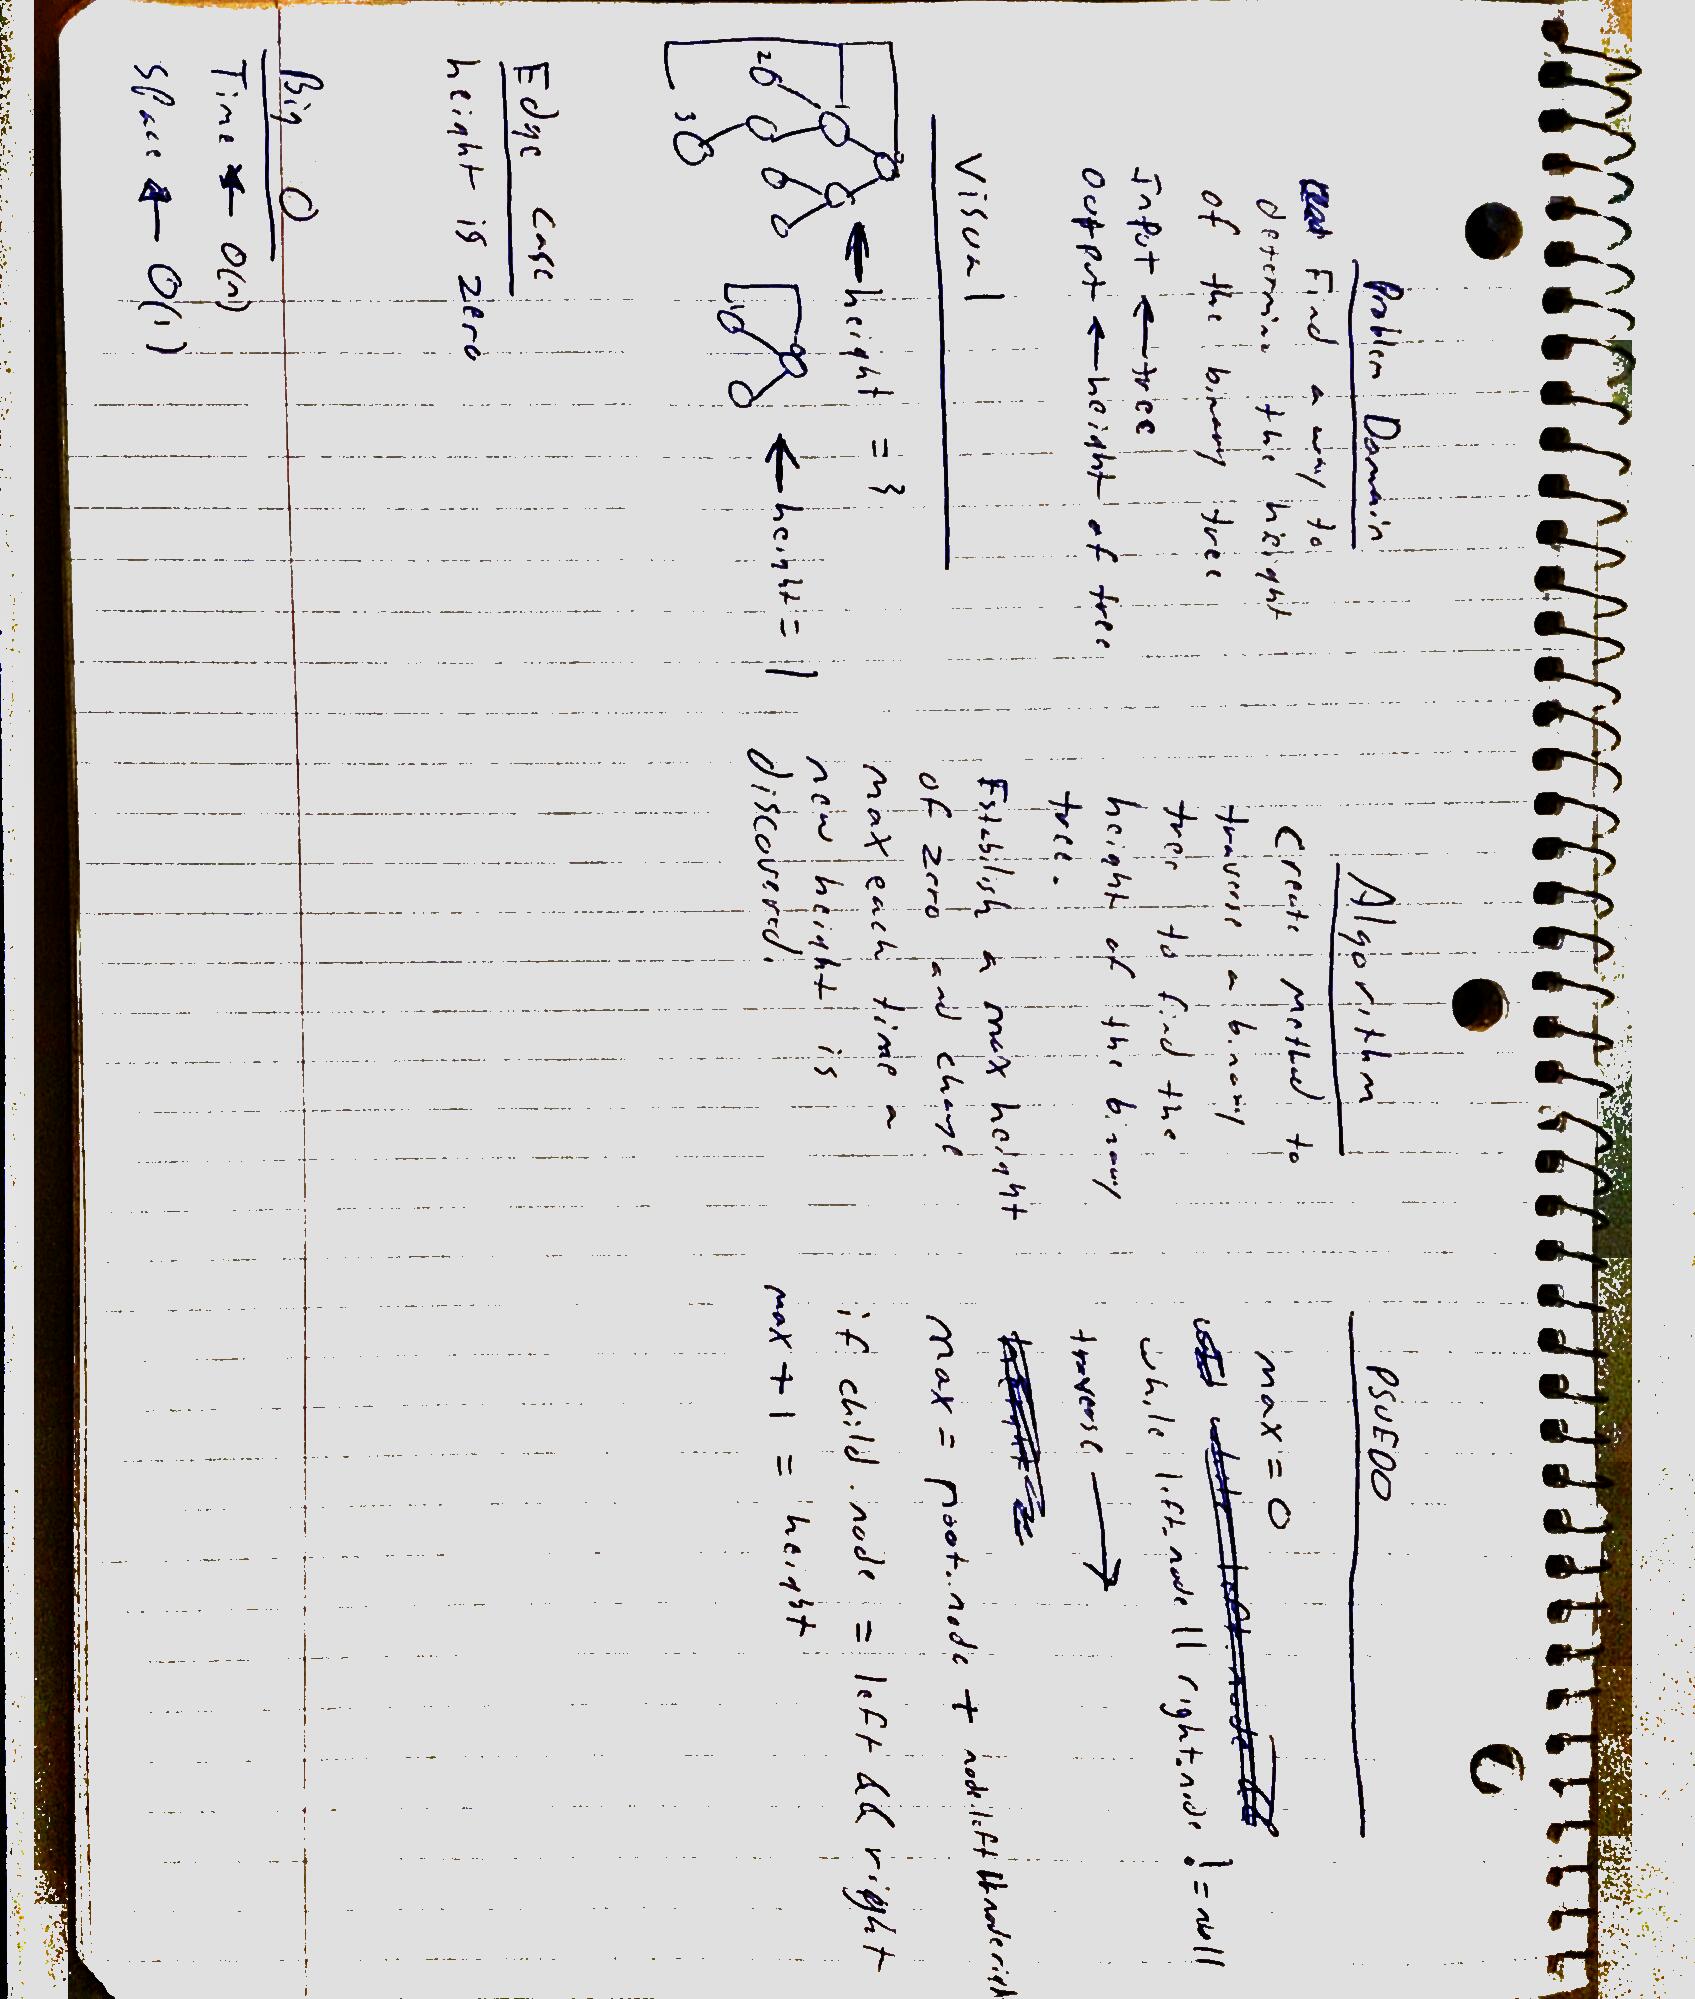 Problem Domain
Find a way to
determin the height
of the binary tree
Input ← tree
output ← height of tree
Visual
1
2
3
← height = 3
1
← height = 1
Edge Case
height is zero
Big O
Time ← O(n)
Space ← O(1)
Algorithm
Create method to
traverse a binary
tree to find the
height of the binary
tree.
Establish a max height
of zero and change
max each time a
new height is
discovered.
PSUEDO
max = 0
while left.node || right.node != null
traverse →
max = root.node + node.left || node.right
if child.node = left && right
max + 1 = height